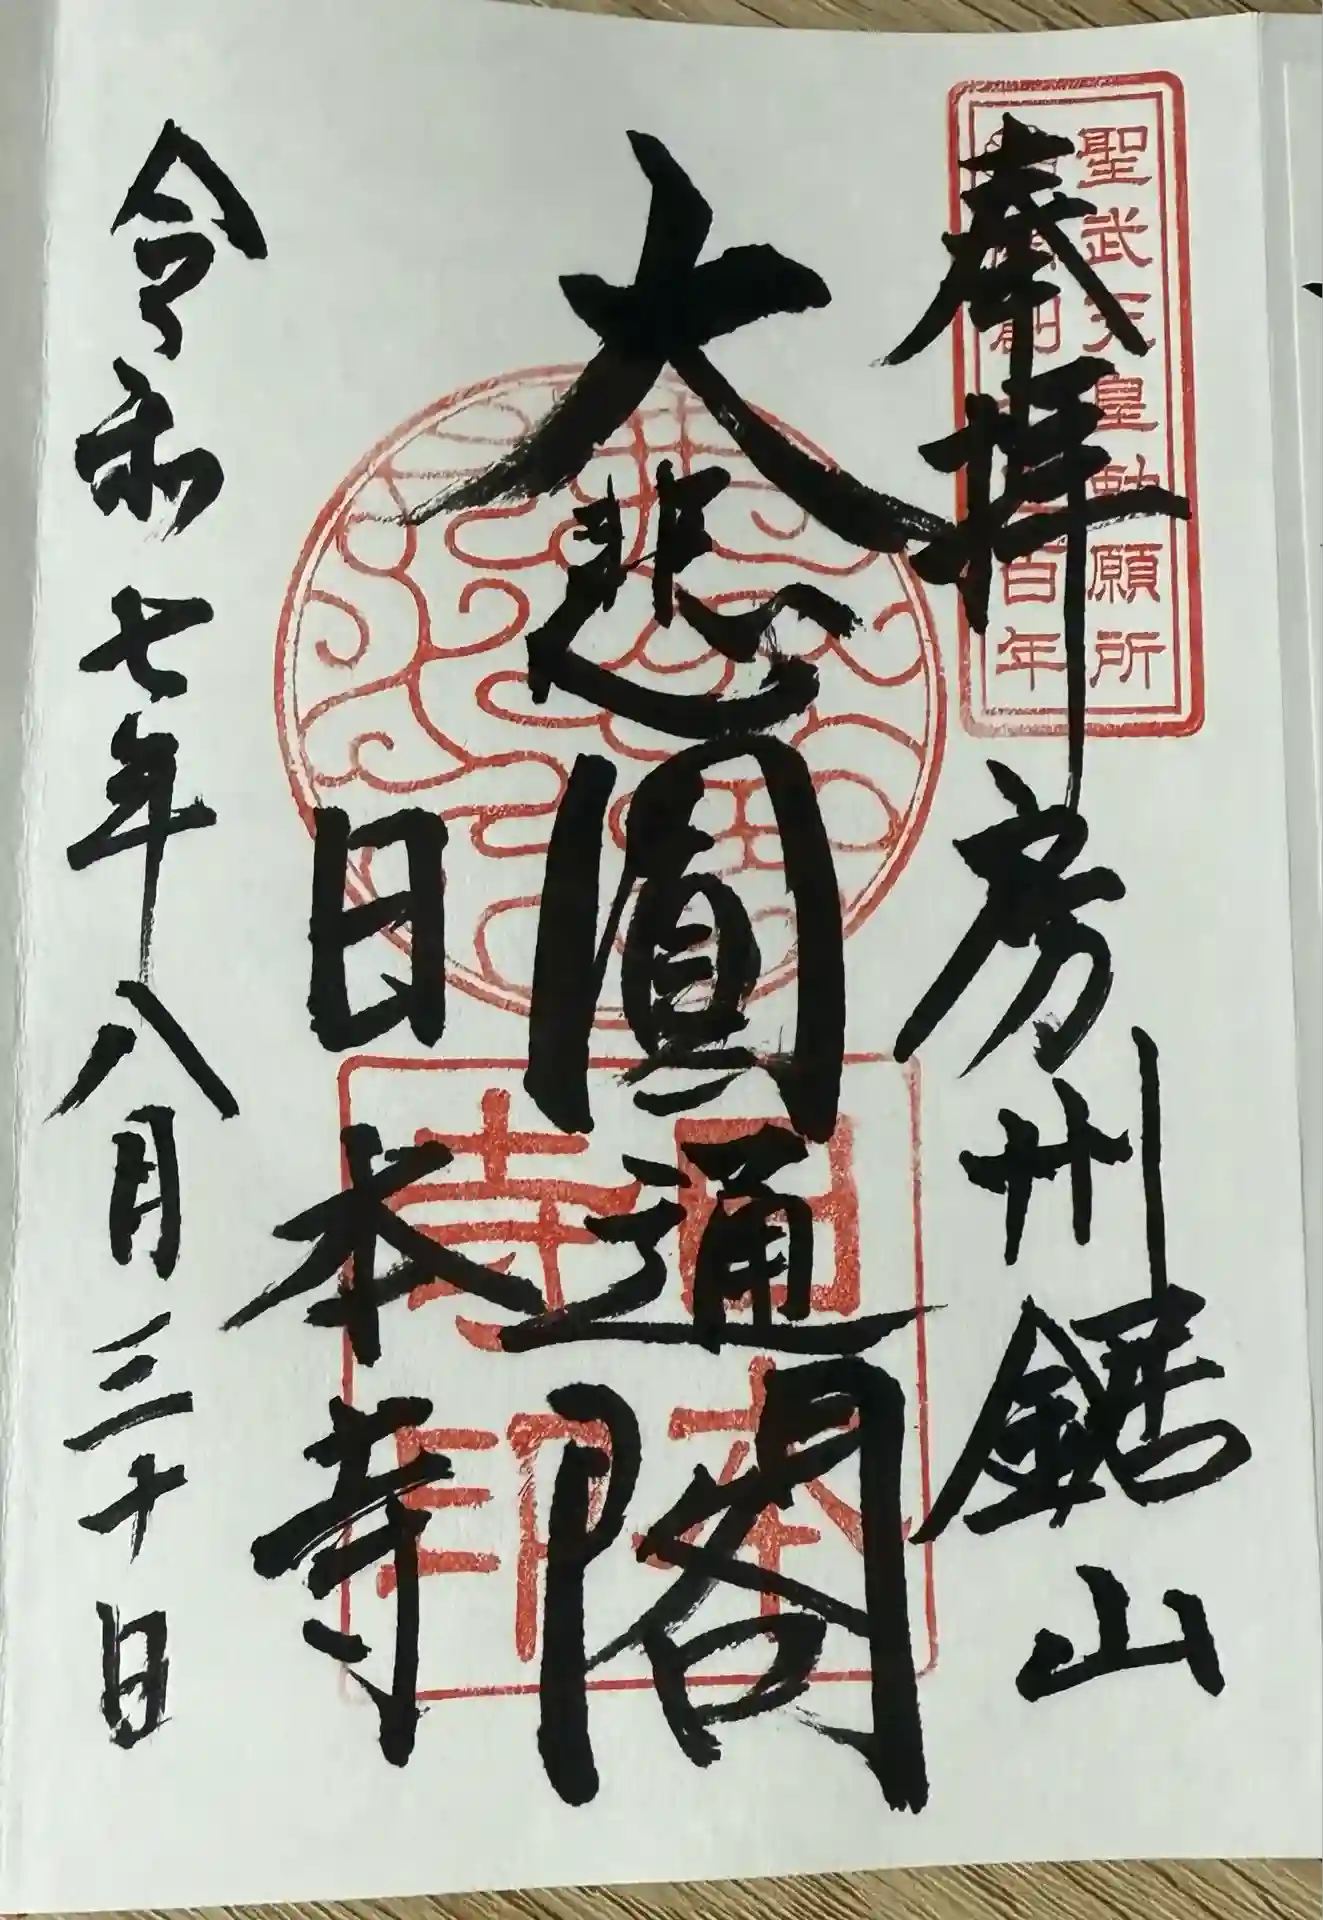 奉拝 房州鋸山
聖武天皇勅願所
創 百年
大悲圓通閣
日本寺
日本寺印
令和七年八月三十日